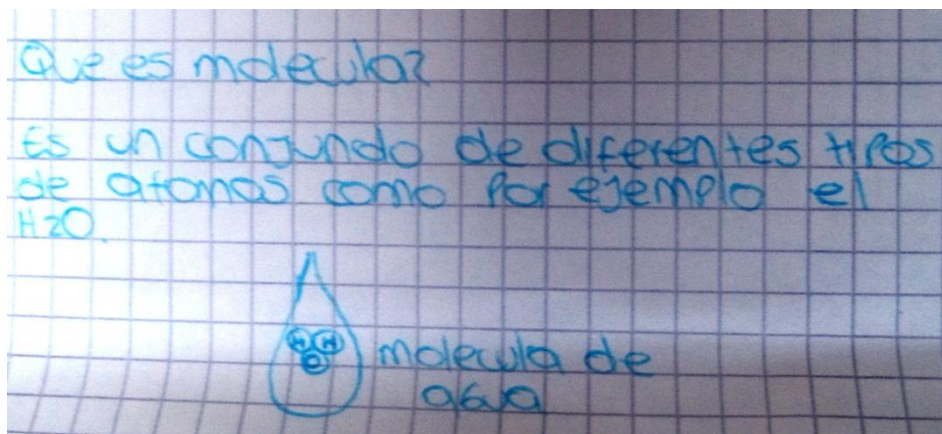 Que es molecula?
Es un conjundo de diferentes tipos
de atomos como por ejemplo el
H2O.
H H
O
molecula de
agua